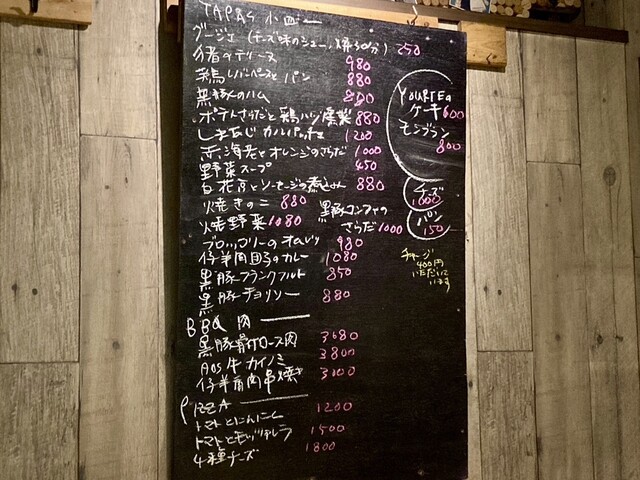 TAPAS 小皿
グージェ (チーズ味のシュー、焼30分) 250
猪のテリーヌ 980
鶏レバーペーストとパン 880
黒豚のハム 880
ポテトさらだと鶏ハツ燻製 880
しまあじカルパッチョ 1200
赤海老とオレンジのさらだ 1000
野菜スープ 450
白花豆とソーセージの煮込み 880
焼きのこ 880
焼野菜 1080
黒豚コンフィの
さらだ 1000
ブロッコリーのオムレツ 980
仔羊肉団子のカレー 1080
黒豚フランクフルト 850
黒豚チョリソー 880
BBQ 肉
黒豚骨付ロース肉 3680
Aus牛カイノミ 3800
仔羊肩肉串焼き 3000
PIZZA
トマトとにんにく 1200
トマトとモッツァレラ 1500
4種チーズ 1800
YOURTEa
ケーキ 600
モンブラン
800
チーズ
1000
パン
150
チャージ
400円
いただいて
います